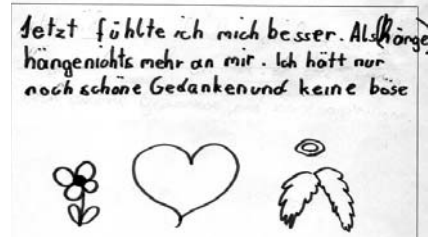 Jetzt fühlte ich mich besser. Als hänge
hänge nichts mehr an mir. Ich hätt nur
noch schöne Gedanken und keine böse